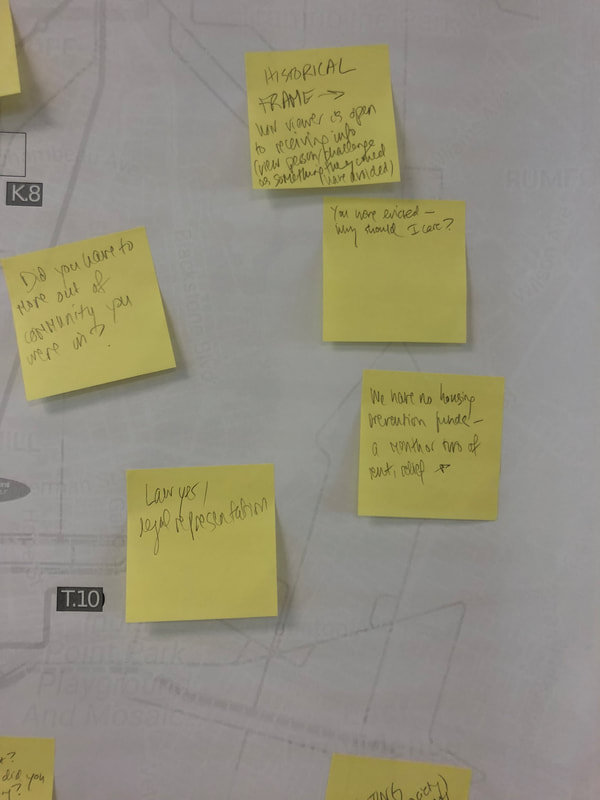 HISTORICAL
FRAME →
viewer is open
to receiving info
(view person/challenge
as something they could
have avoided)
You were evicted –
why should I care?
K.8
Did you have to
move out of
community you
were in?
We have no housing
prevention funds –
a month or two of
rent, relief
Lawyer/
legal representation
T.10
Point Park
Playground
And Mosaic
did you